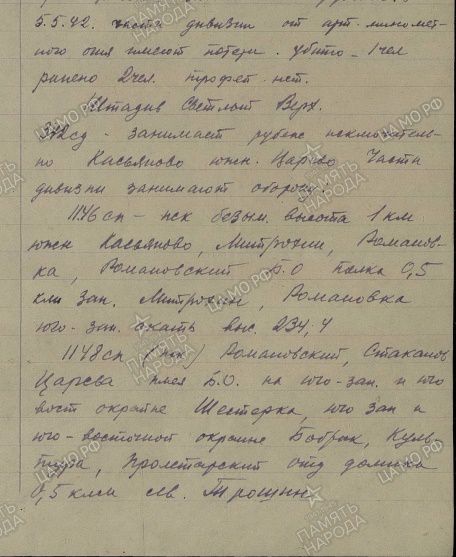 5.5.42. части дивизии от арт. миномет-
ного огня имеют потери. убито - 1 чел
ранено 2 чел. трофей нет.
Штадив Светлый Верх.
сд - занимает рубеж исключитель-
но Касьяново южн. Царево Части
дивизии занимают оборону:
1176 сп - иск безым. высота 1 км
южн Касьяново, Митрохин, Романов-
ка, Романовский Б.О полка 0,5
клм зап. Митрохин, Романовка
юго-зап. скаты выс. 234,4
1178 сп (иск) Романовский, Стаканов
Царева имея Б.О. на юго-зап. и юго
вост окраине Шестерка, юго зап и
юго-восточной окраине Бобрик, Куль-
тура, Пролетарский отд домика
0,5 клм св. Трошин
ПАМЯТЬ НАРОДА
ЦАМО РФ